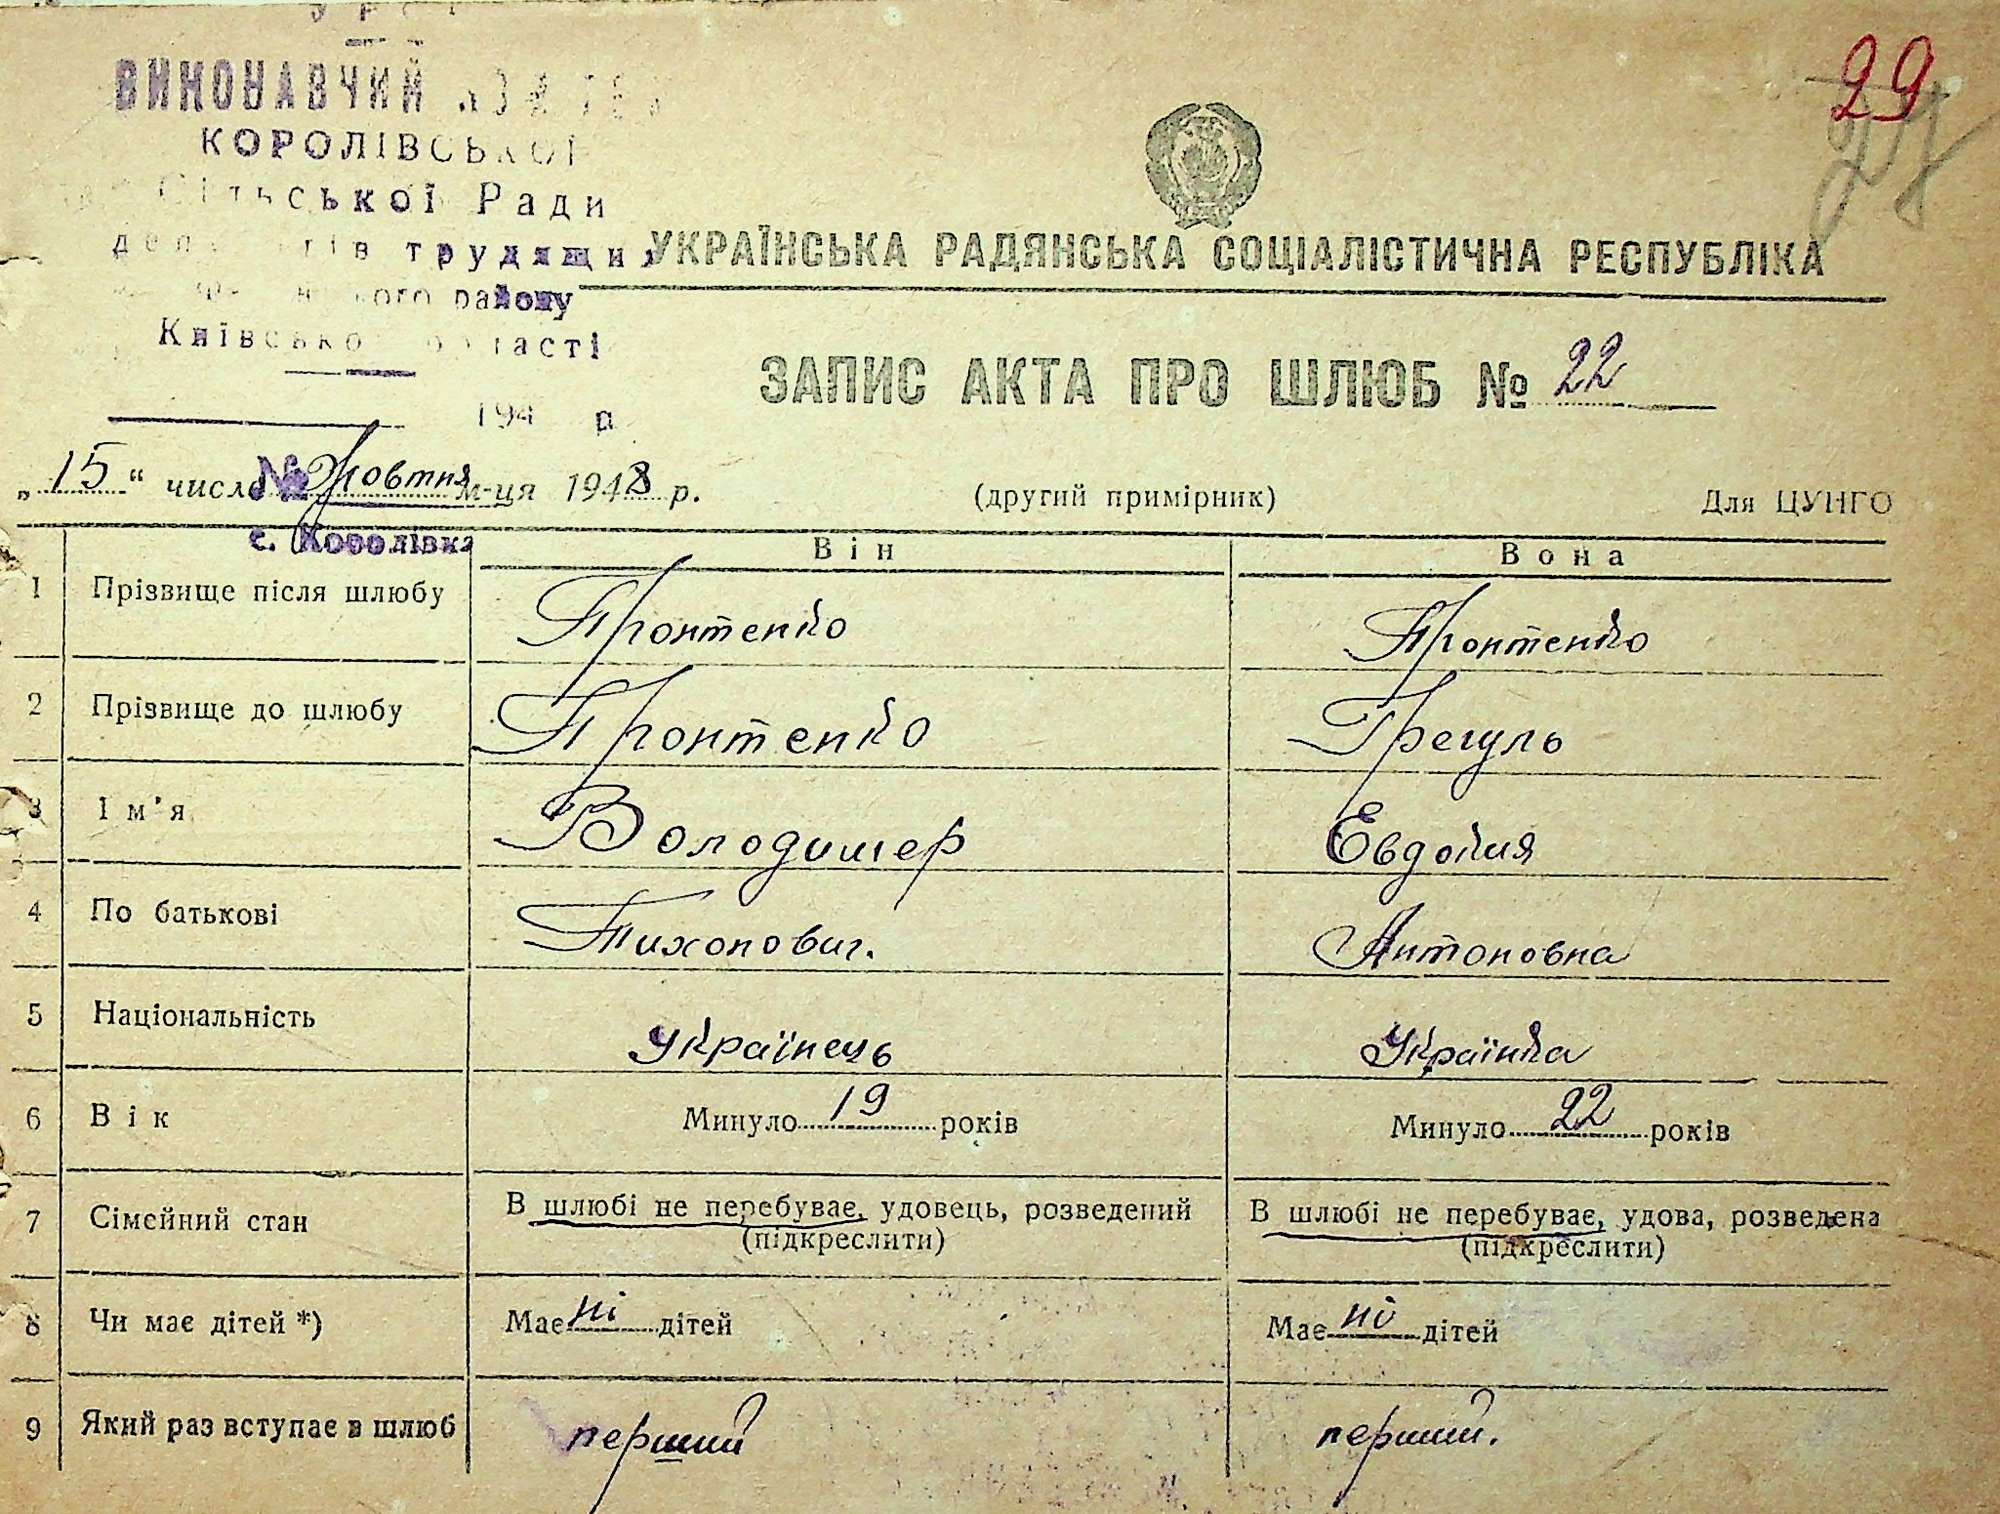 УРСР
ВИКОНАВЧИЙ КОМІТЕТ
КОРОЛІВСЬКОЇ
Сільської Ради
депутатів трудящих
району
Київської області
194 р.
№
с. Королівка
29
УКРАЇНСЬКА РАДЯНСЬКА СОЦІАЛІСТИЧНА РЕСПУБЛІКА
ЗАПИС АКТА ПРО ШЛЮБ № 22
„15“ число жовтня м-ця 1948 р. (другий примірник) Для ЦУНГО
Він Вона
1 Прізвище після шлюбу Протенко Протенко
2 Прізвище до шлюбу Протенко Грегуль
3 Ім'я Володимер Евдокия
4 По батькові Тихонович. Антоновна
5 Національність Українець Українка
6 Вік Минуло 19 років Минуло 22 років
7 Сімейний стан В шлюбі не перебуває, удовець, розведений (підкреслити) В шлюбі не перебуває, удова, розведена (підкреслити)
8 Чи має дітей *) Має ні дітей Має ні дітей
9 Який раз вступає в шлюб перший перший.